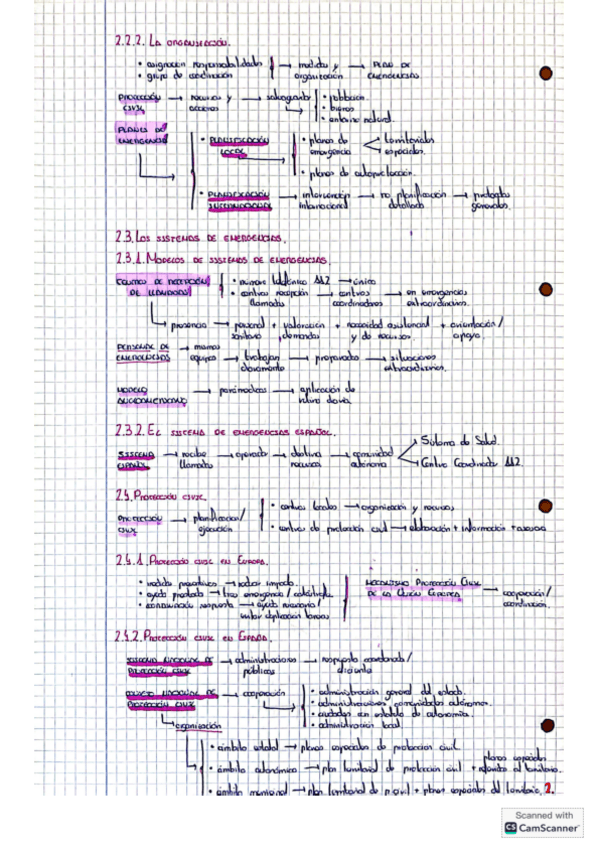 2.2.2. LA ORGANIZACIÓN.
• asignación responsabilidades → medidas y → PLAN DE
• grupo de coordinación organización EMERGENCIAS
PROTECCIÓN → recursos y → salvaguardar • población
CIVIL acciones • bienes
• entorno natural.
PLANES DE
EMERGENCIA • PLANIFICACIÓN • planes de territoriales
LOCAL emergencia especiales.
• planes de autoprotección.
• PLANIFICACIÓN → intervención → no planificación → protocolos
INTERNACIONAL internacional detallada generales.
2.3. LOS SISTEMAS DE EMERGENCIAS.
2.3.1. MODELOS DE SISTEMAS DE EMERGENCIAS.
EQUIPOS DE RECEPCIÓN • número telefónico 112 → único
DE LLAMADAS • centros recepción → centros → en emergencias
llamadas coordinadores extraordinarias.
→ presencia → personal + valoración + necesidad asistencial + orientación/
sanitario demandas y de recursos. apoyo.
PERSONAL DE → mismos
EMERGENCIAS equipos → trabajan → preparados → situaciones
diariamente extraordinarias.
MODELO → paramédicos → aplicación de
ANGLOAMERICANO
2.3.2. EL SISTEMA DE EMERGENCIAS ESPAÑOL.
SISTEMA → recibe → operador → destina → comunidad Sistema de Salud.
ESPAÑOL llamadas recursos autónoma Centro Coordinador 112.
2.4. PROTECCIÓN CIVIL.
PROTECCIÓN → planificación/ • centros locales → organización y recursos
CIVIL ejecución • centros de protección civil → elaboración + información +
2.4.1. PROTECCIÓN CIVIL EN EUROPA.
• medidas preventivas → reducir impacto. MECANISMO PROTECCIÓN CIVIL
• ayuda prestada → tras emergencia / catástrofe DE LA UNIÓN EUROPEA → cooperación/
• comunicación respuesta → ayuda necesaria / coordinación.
evitar duplicación
2.4.2. PROTECCIÓN CIVIL EN ESPAÑA.
SISTEMA NACIONAL DE → administraciones → respuesta coordinada/
PROTECCIÓN CIVIL públicas eficiente
CONSEJO NACIONAL DE → cooperación • administración general del estado.
PROTECCIÓN CIVIL • administraciones comunidades autónomas.
• ciudades con estatuto de autonomía.
→ organización • administración local.
• ámbito estatal → planes especiales de protección civil
• ámbito autonómico → plan territorial de protección civil + planes especiales referidos al territorio.
• ámbito municipal → plan territorial de p. civil + planes especiales del territorio. 2.
Scanned with
CS CamScanner